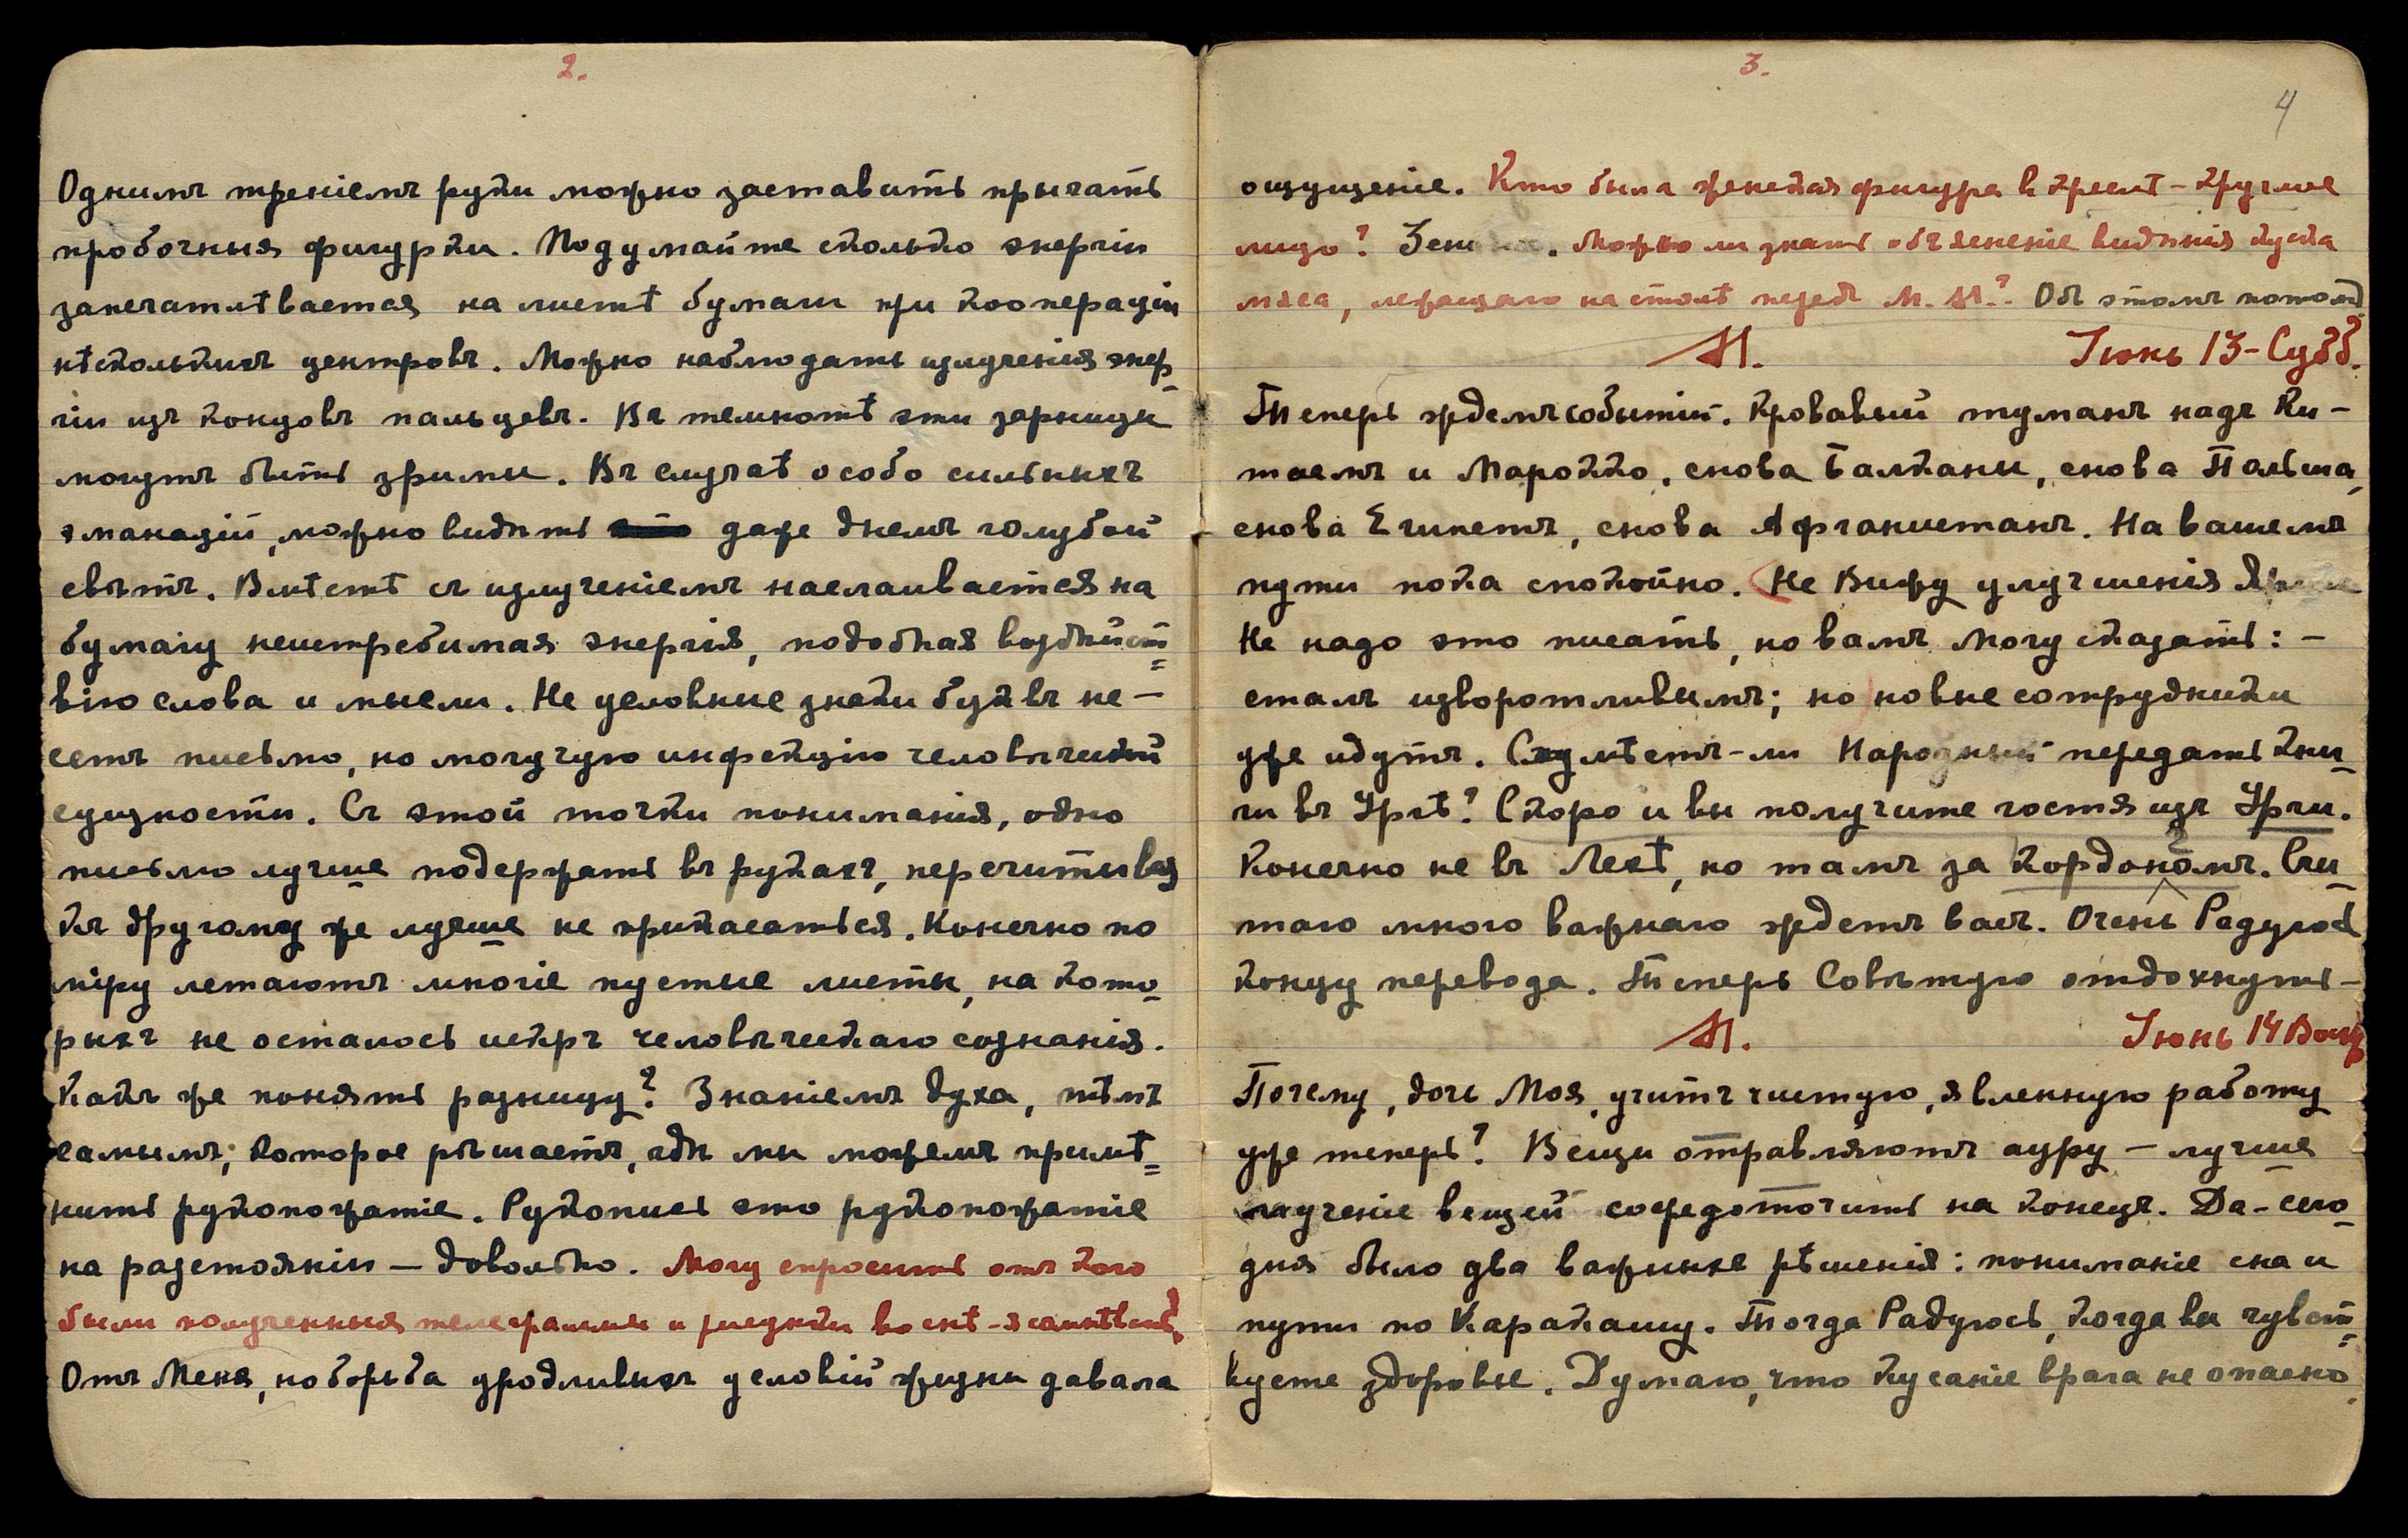 2.
Однимъ треніемъ руки можно заставить прыгать
пробочныя фигурки. Подумайте сколько энергіи
запечатлѣвается на листѣ бумаги при кооперацiи
нѣсколькихъ центровъ. Можно наблюдать излученія энер-
гіи изъ концовъ пальцевъ. Въ темнотѣ эти зарницы
могутъ быть зримы. Въ случаѣ особо сильныхъ
эманацій, можно видѣть даже днемъ голубой
свѣтъ. Вмѣстѣ съ излученіемъ наслаивается на
бумагу неистребимая энергія, подобная воздѣйст=
вію слова и мысли. Не условные знаки буквъ не-
сетъ письмо, но могучую инфекцію человѣческой
сущности. Съ этой точки пониманія, одно
письмо лучше подержать въ рукахъ, перечитывая
Къ другому же лучше не прикасаться. Конечно по
міру летаютъ многіе пустые листы, на кото-
рыхъ не осталось искръ человѣческаго сознанія.
Какъ же понять разницу? Знаніемъ духа, тѣмъ
самымъ; которое рѣшаетъ, гдѣ мы можемъ примѣ=
нить рукопожатіе. Рукопись это рукопожатіе
на разстояніи — довольно. Могу спросить отъ кого
были полученныя телеграммы и рисунки во снѣ
Отъ Меня, но борьба уродливыхъ условій жизни давала
3.
4
ощущеніе. Кто была женская фигура круглое
лицо? Можно ли знать объясненіе видѣнія куска
мяса, лежащаго на столѣ передъ М. М.? Объ этомъ потомъ
М. Іюнь 13-Субб.
Теперь ждемъ событій. Кровавый туманъ надъ Ки-
таемъ и Марокко, снова Балканы, снова Польша,
снова Египетъ, снова Афганистанъ. На вашемъ
пути пока спокойно. Не Вижу улучшенія
Не надо это писать, но вамъ могу сказать: -
сталъ изворотливымъ; но новые сотрудники
уже идутъ. Сумѣетъ-ли Народный передать кни-
ги въ Ургѣ? Скоро и вы получите гостя изъ Урги.
Конечно не въ Лехѣ, но тамъ за кордономъ. Счи-
таю много важнаго ждетъ васъ. Очень Радуюсь
концу перевода. Теперь Совѣтую отдохнуть -
М. Іюнь 14 Воскр
Почему, дочь Моя, учитъ чистую, явленную работу
уже теперь? Вещи отравляютъ ауру — лучше
мученіе вещей сосредоточить на конецъ. Да-сего-
дня было два важныхъ рѣшенія: пониманіе сна и
пути по Каракашу. Тогда Радуюсь, когда вы чувст=
вуете здоровье. Думаю, что кусаніе врага не опасно.